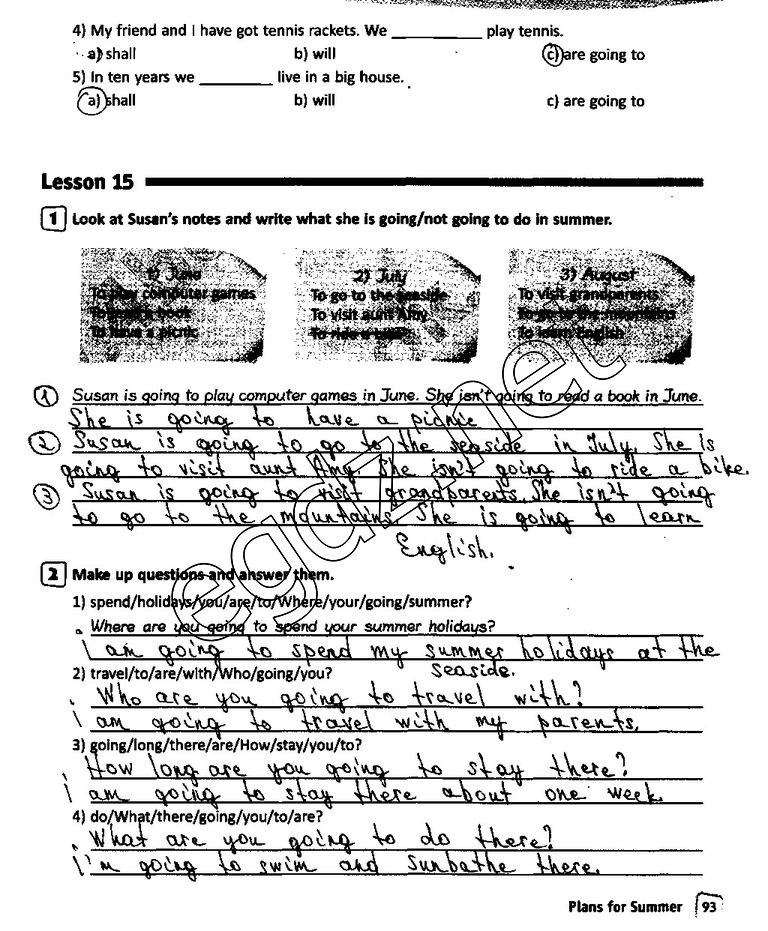 4) My friend and I have got tennis rackets. We __________ play tennis.
a) shall b) will c) are going to
5) In ten years we __________ live in a big house.
a) shall b) will c) are going to
Lesson 15
1 Look at Susan's notes and write what she is going/not going to do in summer.
1) June 2) July 3) August
To play computer games To go to the seaside To visit grandparents
To read a book To visit aunt Amy To go to the mountains
To have a picnic To ride a bike To learn English
1 Susan is going to play computer games in June. She isn't going to read a book in June.
She is going to have a picnic
2 Susan is going to go to the seaside in July. She is
going to visit aunt Amy. She isn't going to ride a bike.
3 Susan is going to visit grandparents. She isn't going
to go to the mountains. She is going to learn
English.
2 Make up questions and answer them.
1) spend/holidays/you/are/to/Where/your/going/summer?
Where are you going to spend your summer holidays?
I am going to spend my summer holidays at the
seaside.
2) travel/to/are/with/Who/going/you?
Who are you going to travel with?
I am going to travel with my parents.
3) going/long/there/are/How/stay/you/to?
How long are you going to stay there?
I am going to stay there about one week.
4) do/What/there/going/you/to/are?
What are you going to do there?
I'm going to swim and sunbathe there.
Plans for Summer 93
egdz.net